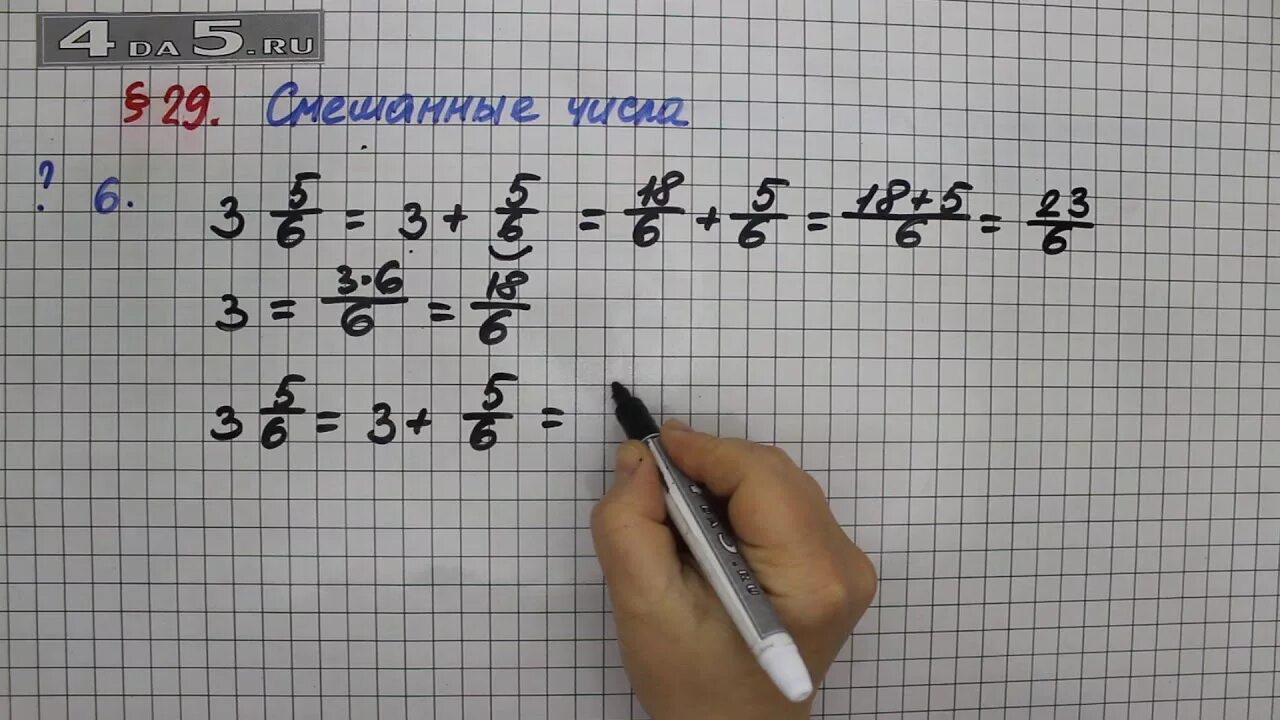 4DA5.RU
§ 29. Смешанные числа
? 6. 3 5/6 = 3 + 5/6 = 18/6 + 5/6 = (18+5)/6 = 23/6
3 = (3·6)/6 = 18/6
3 5/6 = 3 + 5/6 =